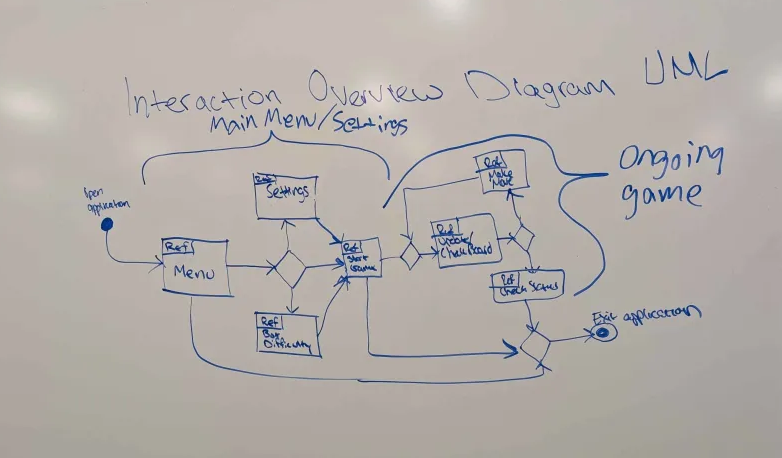 Interaction Overview Diagram UML
Main Menu/Settings
Ongoing
game
Open
application
Ref
Menu
Ref
Settings
Ref
Bot
Difficulty
Ref
Start
Game
Ref
Update/
Check Board
Ref
Make
Move
Ref
Check Status
Exit application